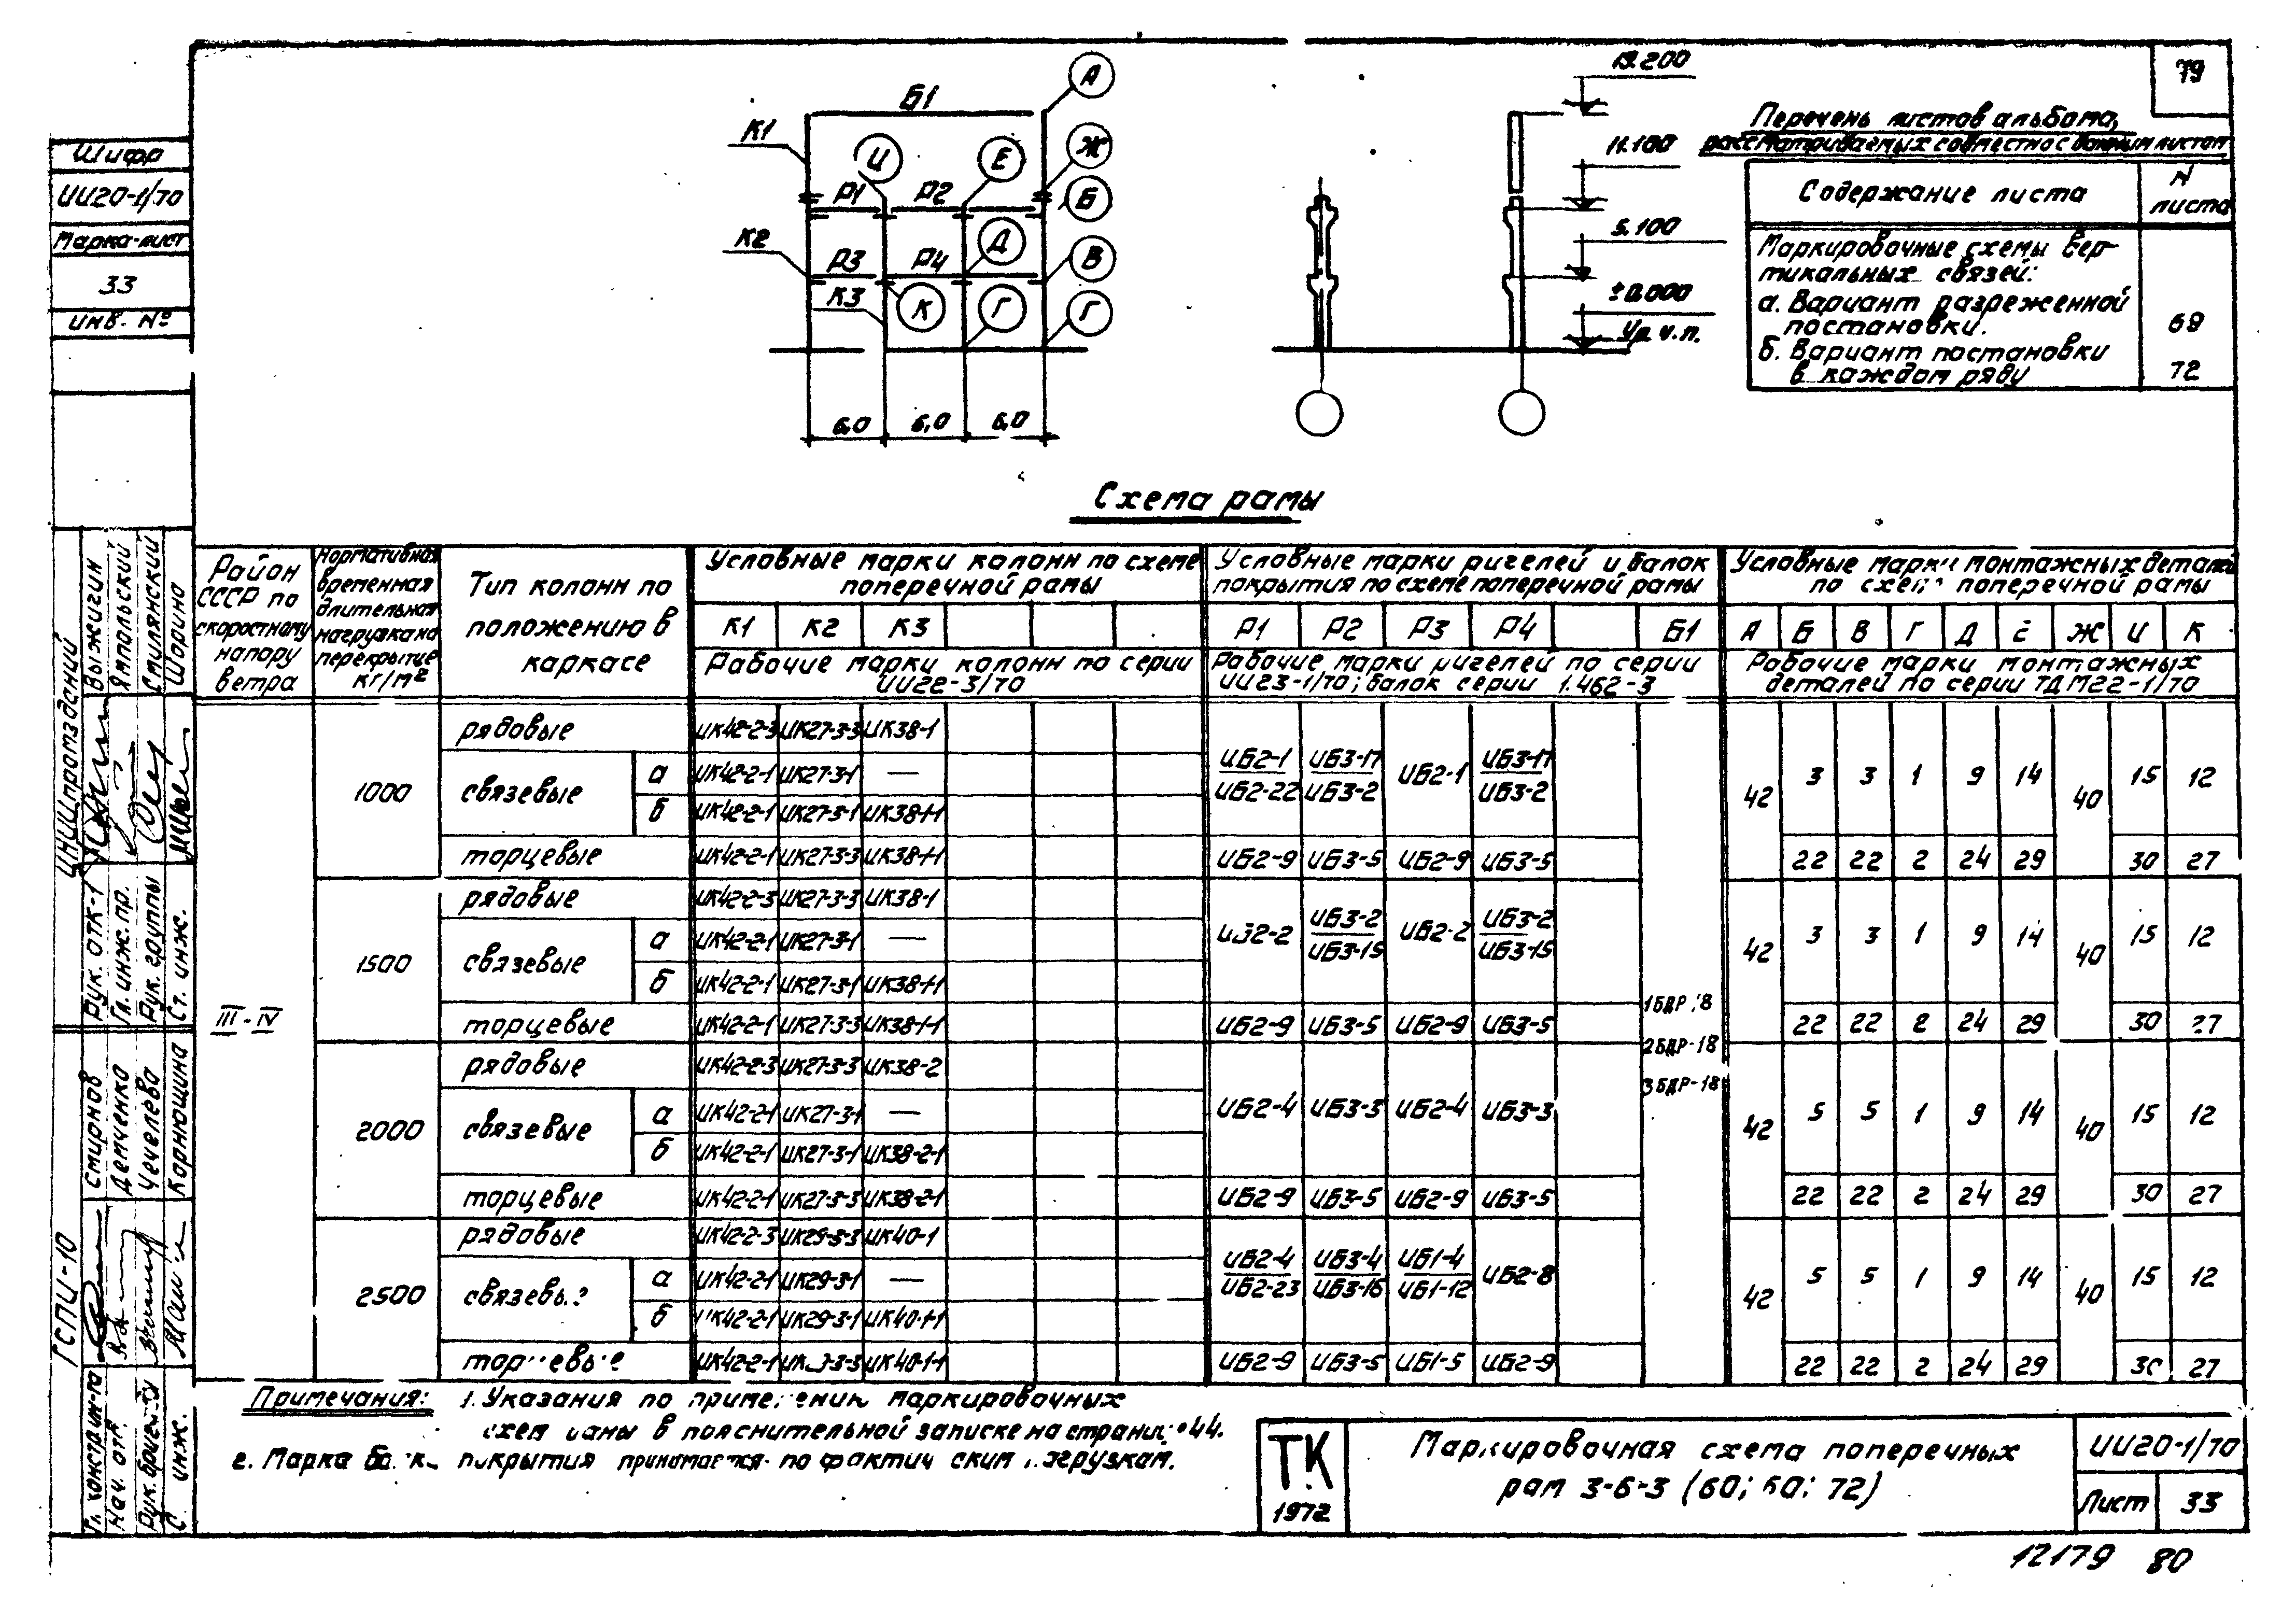 79
Б1
К1
К2
К3
Р1
Р2
Р3
Р4
А
Ж
Б
В
Г
И
Е
Д
К
Г
6,0
6,0
6,0
11.100
±0.000
Ур. ч.п.
Перечень листов альбома,
рассматриваемых совместно с данным листом
Содержание листа
N листа
Маркировочные схемы вер-
тикальных связей:
а. Вариант разреженной
постановки.
69
б. Вариант постановки
в каждом ряду
72
Шифр
ИИ20-1/70
Марка-лист
33
инв. №
Схема рамы
Район СССР по скоростному напору ветра
Нормативная временная длительная нагрузка на перекрытие кг/м²
Тип колонн по положению в каркасе
Условные марки колонн по схеме поперечной рамы
Условные марки ригелей и балок покрытия по схеме поперечной рамы
Условные марки монтажных деталей по схеме поперечной рамы
К1 К2 К3
Р1 Р2 Р3 Р4 Б1
А Б В Г Д Е Ж И К
Рабочие марки колонн по серии ИИ22-3/70
Рабочие марки ригелей по серии ИИ23-1/70; балок серии 1.462-3
Рабочие марки монтажных деталей по серии ТДМ22-1/70
III-IV
1000
рядовые ИК42-2-3 ИК27-3-3 ИК38-1
связевые
а ИК42-2-1 ИК27-3-1 —
б ИК42-2-1 ИК27-3-1 ИК38-1-1
ИБ2-1 ИБ3-17 ИБ2-1 ИБ3-17
ИБ2-22 ИБ3-2 ИБ3-2
42 3 3 1 9 14 40 15 12
торцевые ИК42-2-1 ИК27-3-3 ИК38-1-1 ИБ2-9 ИБ3-5 ИБ2-9 ИБ3-5 22 22 2 24 29 30 27
1500
рядовые ИК42-2-3 ИК27-3-3 ИК38-1
связевые
а ИК42-2-1 ИК27-3-1 —
б ИК42-2-1 ИК27-3-1 ИК38-1-1
ИБ2-2 ИБ3-2 ИБ2-2 ИБ3-2
ИБ3-15 ИБ3-15
42 3 3 1 9 14 40 15 12
торцевые ИК42-2-1 ИК27-3-3 ИК38-1-1 ИБ2-9 ИБ3-5 ИБ2-9 ИБ3-5 22 22 2 24 29 30 27
1БДР-18
2БДР-18
3БДР-18
2000
рядовые ИК42-2-3 ИК27-3-3 ИК38-2
связевые
а ИК42-2-1 ИК27-3-1 —
б ИК42-2-1 ИК27-3-1 ИК38-2-1
ИБ2-4 ИБ3-3 ИБ2-4 ИБ3-3
42 5 5 1 9 14 40 15 12
торцевые ИК42-2-1 ИК27-3-3 ИК38-2-1 ИБ2-9 ИБ3-5 ИБ2-9 ИБ3-5 22 22 2 24 29 30 27
2500
рядовые ИК42-2-3 ИК29-3-3 ИК40-1
связевые
а ИК42-2-1 ИК29-3-1 —
б ИК42-2-1 ИК29-3-1 ИК40-1-1
ИБ2-4 ИБ3-4 ИБ1-4 ИБ2-8
ИБ2-23 ИБ3-16 ИБ1-12
42 5 5 1 9 14 40 15 12
торцевые ИК42-2-1 ИК40-1-1 ИБ2-9 ИБ3-5 ИБ1-5 ИБ2-9 22 22 2 24 29 30 27
Примечания: 1. Указания по применению маркировочных
схем даны в пояснительной записке на странице 44.
2. Марка балки покрытия принимается по фактическим нагрузкам.
ТК
1972
Маркировочная схема поперечных
рам 3-6-3 (60; 60; 72)
ИИ20-1/70
Лист 33
12179 80
ЦНИИпромзданий
Рук. ОТК-1 Выжигин
Гл. инж. пр. Ямпольский
Рук. группы Смилянский
Ст. инж. Шорина
ГСПИ-10
Гл. констр. ин-та Смирнов
Нач. отд. Демченко
Рук. бригады Чечелева
Корнюшина